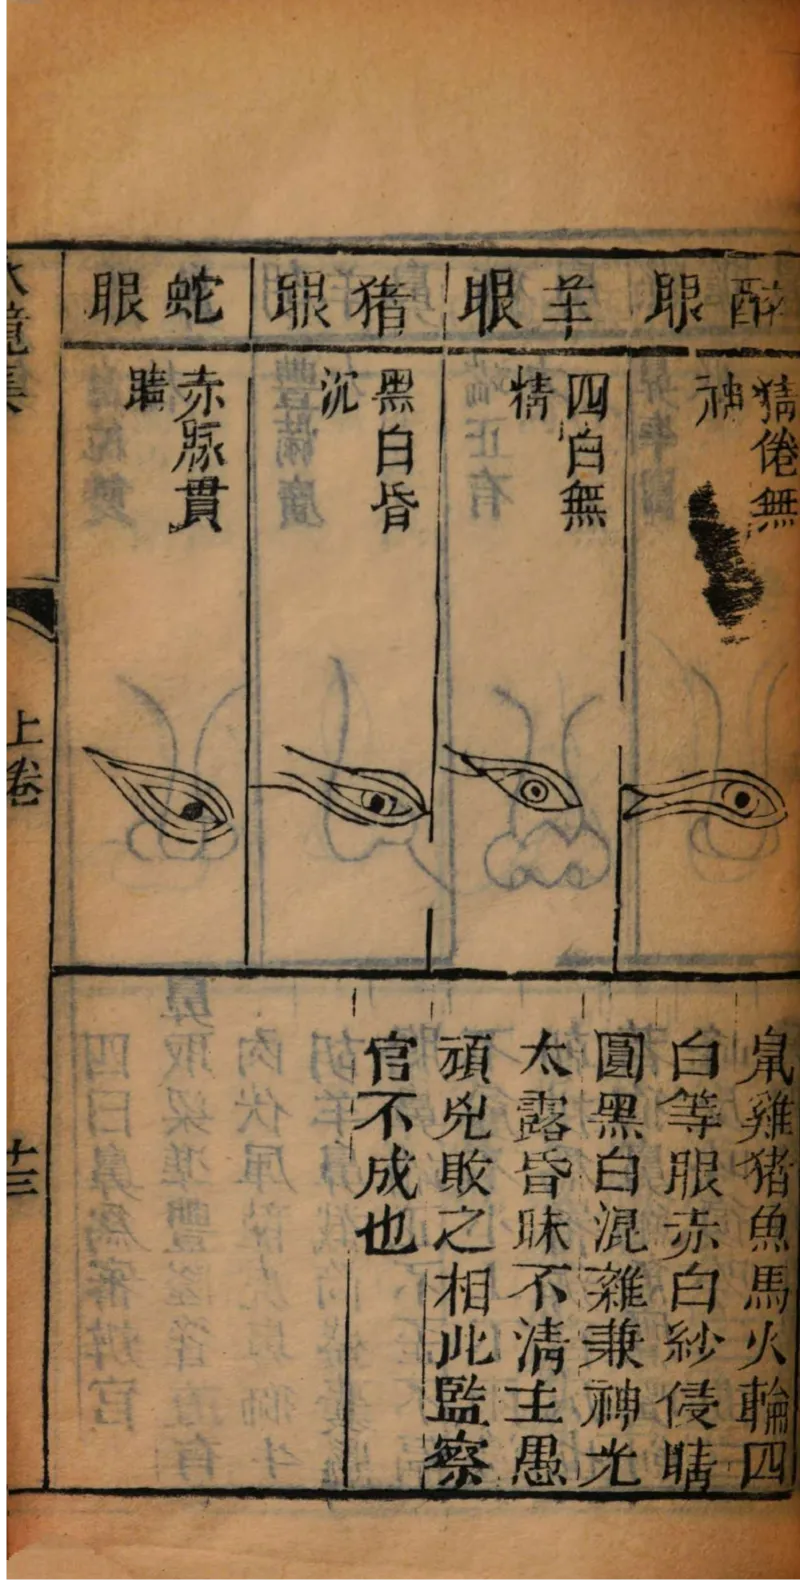 醉眼
猜倦無
神
羊眼
四白無
情
猪眼
黑白昏
沉
蛇眼
赤脉貫
睛
鼠雞猪魚馬火輪四
白等眼赤白紗侵睛
圓黑白混雜兼神光
太露昏昧不清主愚
頑兇敗之相此監察
官不成也
上卷
十三